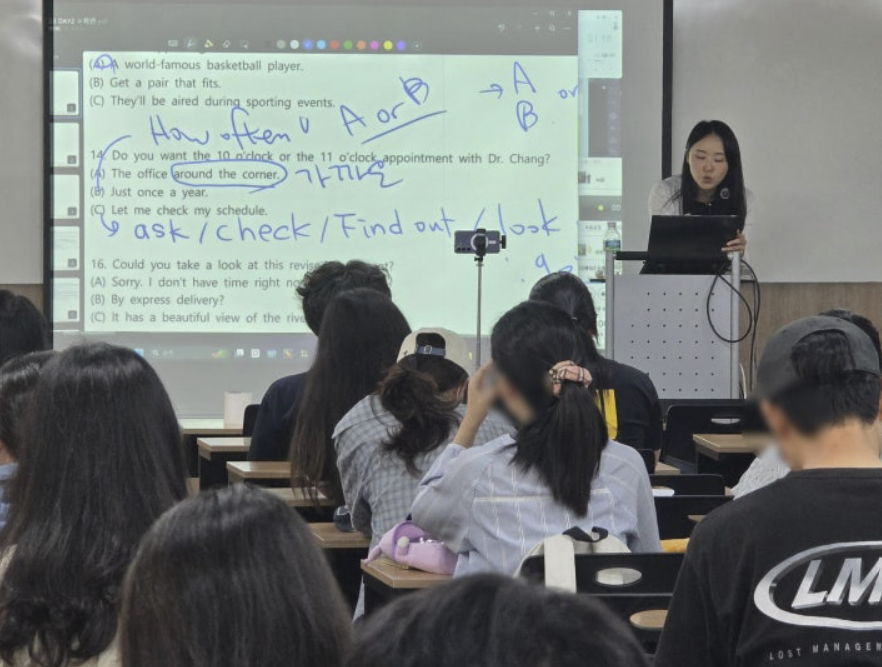 (A) A world-famous basketball player.
(B) Get a pair that fits.
(C) They'll be aired during sporting events.
→ A or
B
How often
A or B
14. Do you want the 10 o'clock or the 11 o'clock appointment with Dr. Chang?
(A) The office around the corner.
가까운
(B) Just once a year.
(C) Let me check my schedule.
ask / check / Find out / look
16. Could you take a look at this
(A) Sorry. I don't have time right
(B) By express delivery?
(C) It has a beautiful view of the
LM
LOST MANAGEM